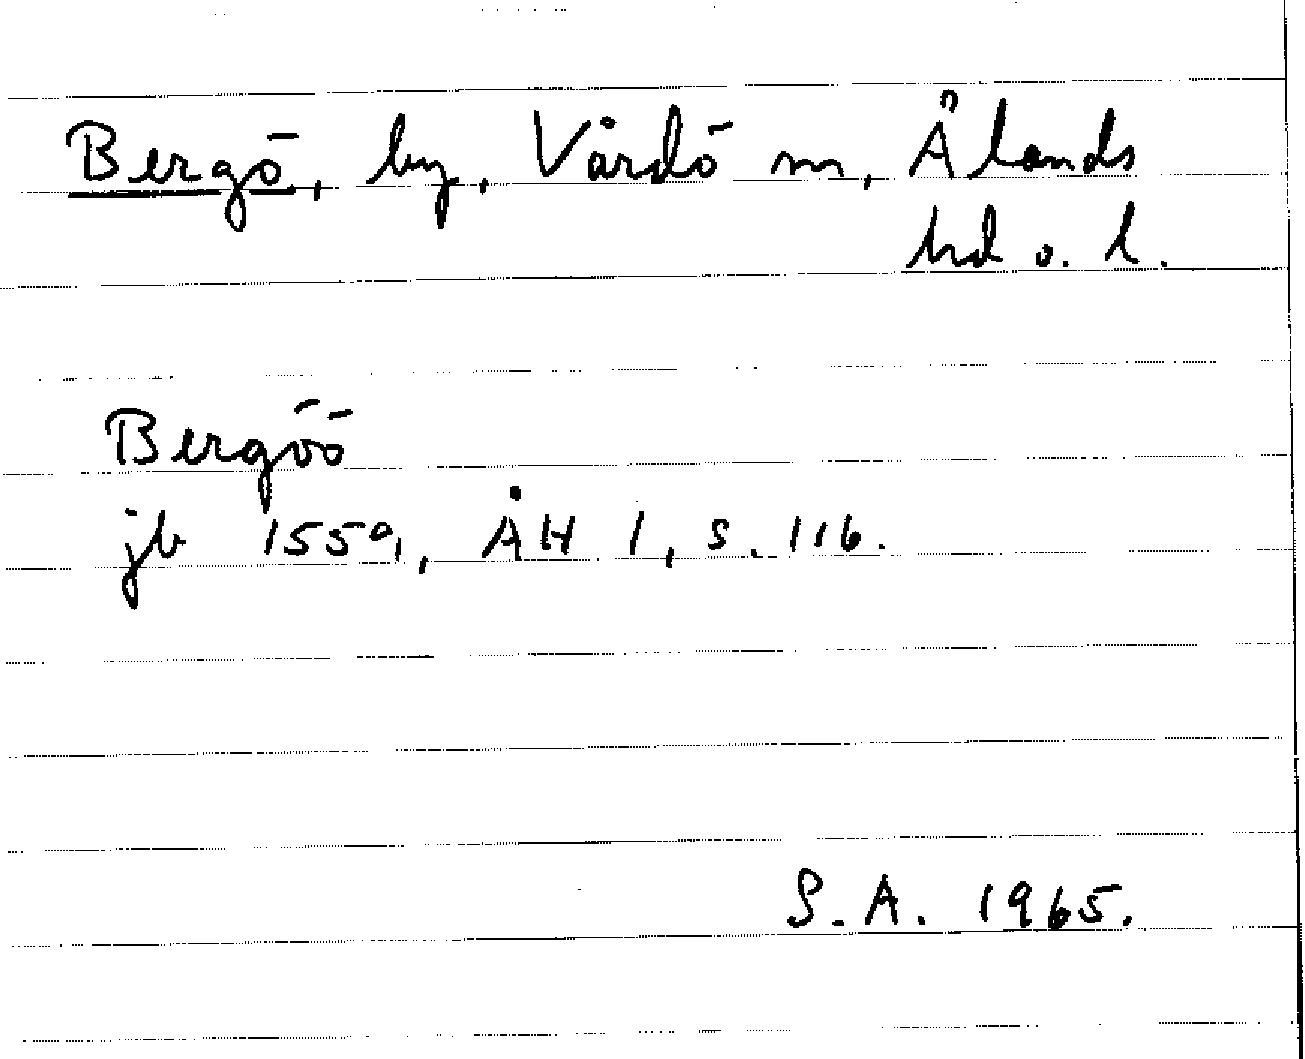 Bergö, by, Vårdö sn, Ålands
hd o. l.
Bergöö
jb 1559, ÅH 1, s. 116.
S.A. 1965.